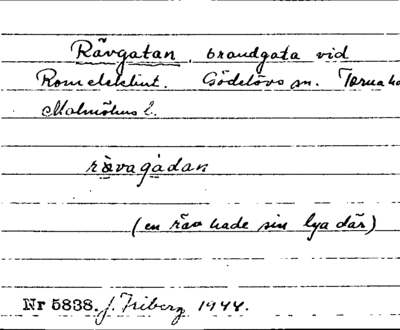 Rävgatan, brandgata vid
Romeleklint. Gödelövs sn. Torna
Malmöhus l.
rävagådan
(en räv hade sin lya där)
Nr 5838. J. Friberg 1944.